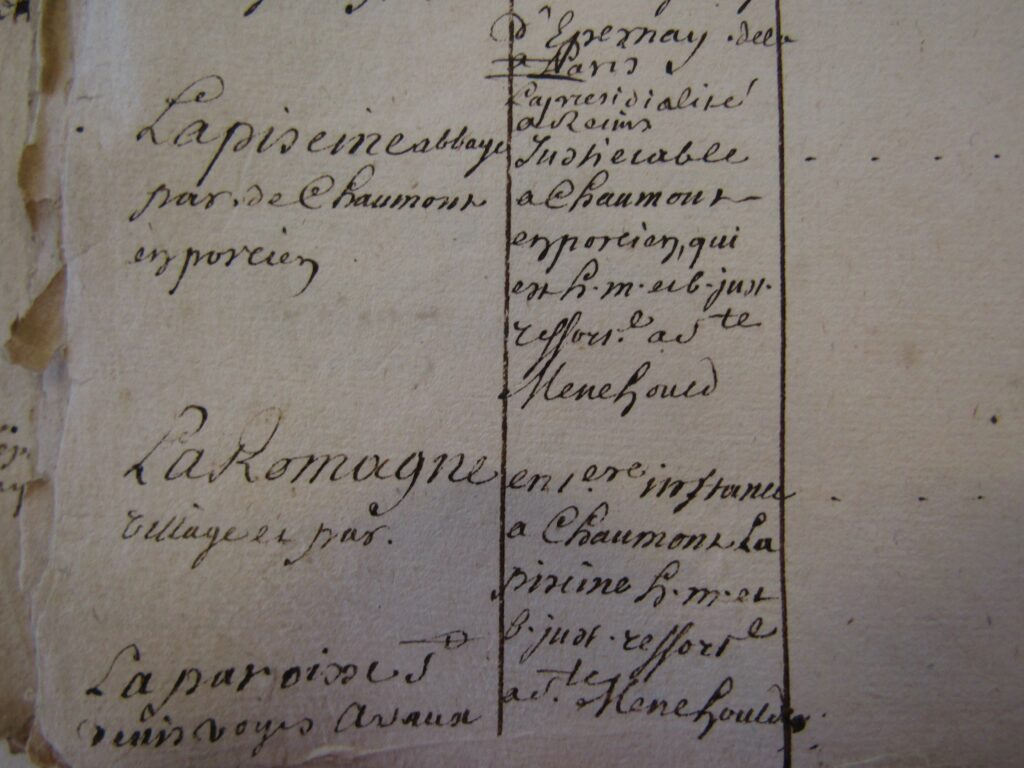 d'Epernay. dela
a Paris
La presidialité
a Reims
Lapiscine abbaye
par. de Chaumont
en porcien
Justiciable
a Chaumont
en porcien, qui
est h. m. et b. just.
ressort.e a S.te
Menehould
La Romagne
village et par.
en 1.ere instance
a Chaumont La
piscine h. m. et
b. just. ressort.e
a S.te Menehould
La paroisse S.t
denis voyés avaux